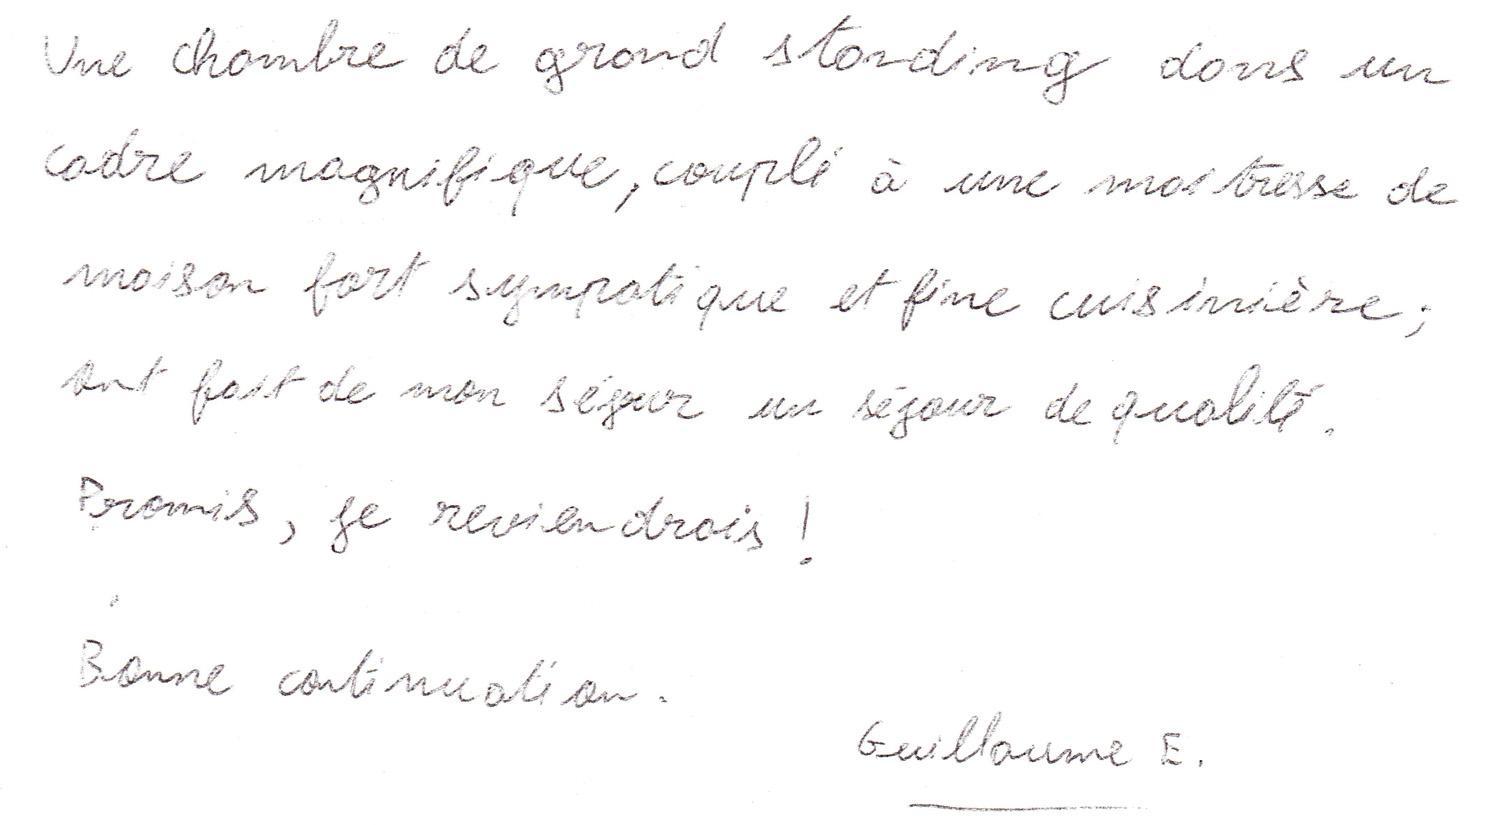 Une chambre de grand standing dans un
cadre magnifique, couplé à une maitresse de
maison fort sympatique et fine cuisinière ;
ont fait de mon séjour un séjour de qualité.
Promis, je reviendrais !
Bonne continuation.
Guillaume E.